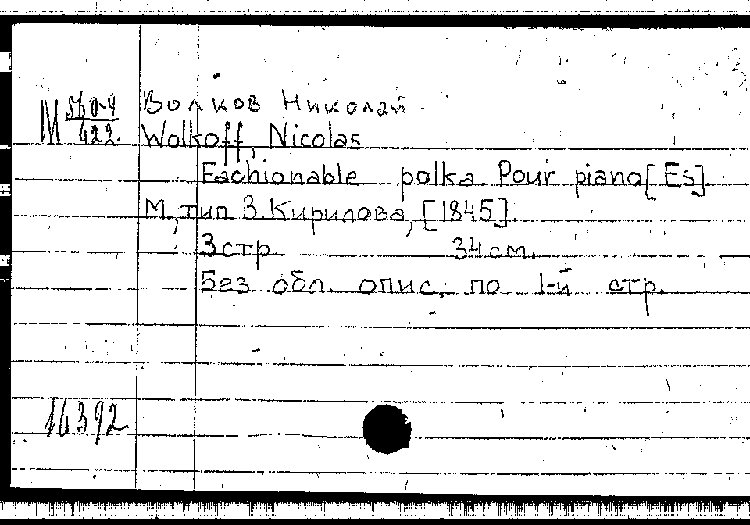 Волков Николай
М 560-9/422. Wolkoff, Nicolas
Fachionable polka Pour piano [Es].
М, тип З. Кирилова, [1845].
3 стр. 34 см.
Без обл. опис. по 1-й стр.
16392